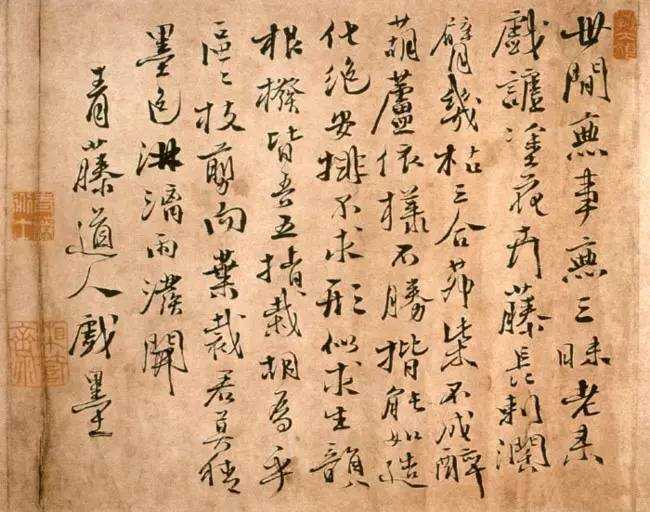 世間無事無三昧老来
戲謔塗花卉藤長刺闊
臂幾枯三合茆柴不成醉
葫蘆依樣不勝揩能如造
化絶安排不求形似求生韻
根撥皆吾五指栽胡爲乎
區〻枝剪而葉裁君莫猜
墨色淋漓雨潑開
青藤道人戲墨